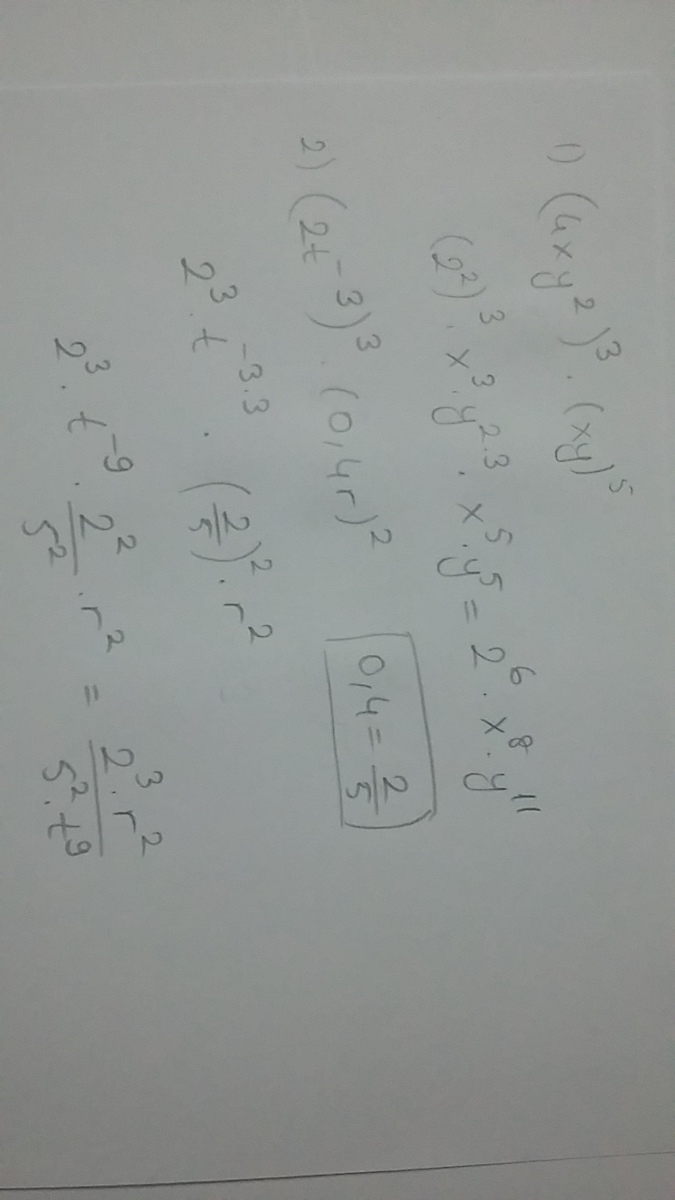 1) (4xy²)³ · (xy)⁵
(2²)³ · x³ · y²·³ · x⁵ · y⁵ = 2⁶ · x⁸ · y¹¹
2) (2t⁻³)³ · (0,4r)²
0,4 = 2/5
2³ · t⁻³·³ · (2/5)² · r²
2³ · t⁻⁹ · 2²/5² · r² = 2³ · r²/5² · t⁹